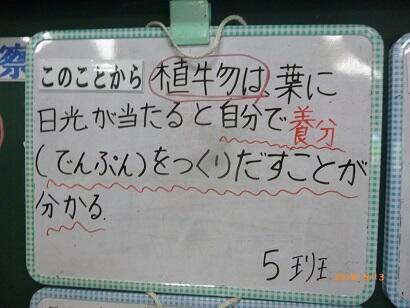 察
このことから 植物は、葉に
日光が当たると自分で養分
(でんぷん)をつくりだすことが
分かる.
5班